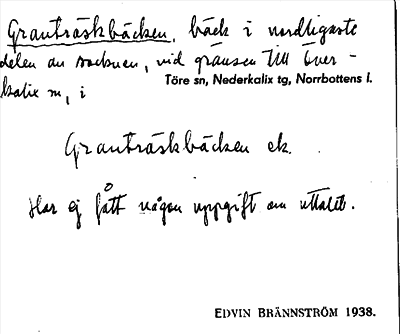 Granträskbäcken, bäck i nordligaste
delen av socknen, vid gränsen till Över-
kalix sn, i
Töre sn, Nederkalix tg, Norrbottens l.
Granträskbäcken ek.
Har ej fått någon uppgift om uttalet.
EDVIN BRÄNNSTRÖM 1938.